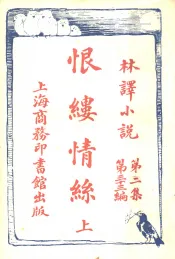 林譯小說
第二集
第三十三編
恨縷情絲
上
上海商務印書館出版